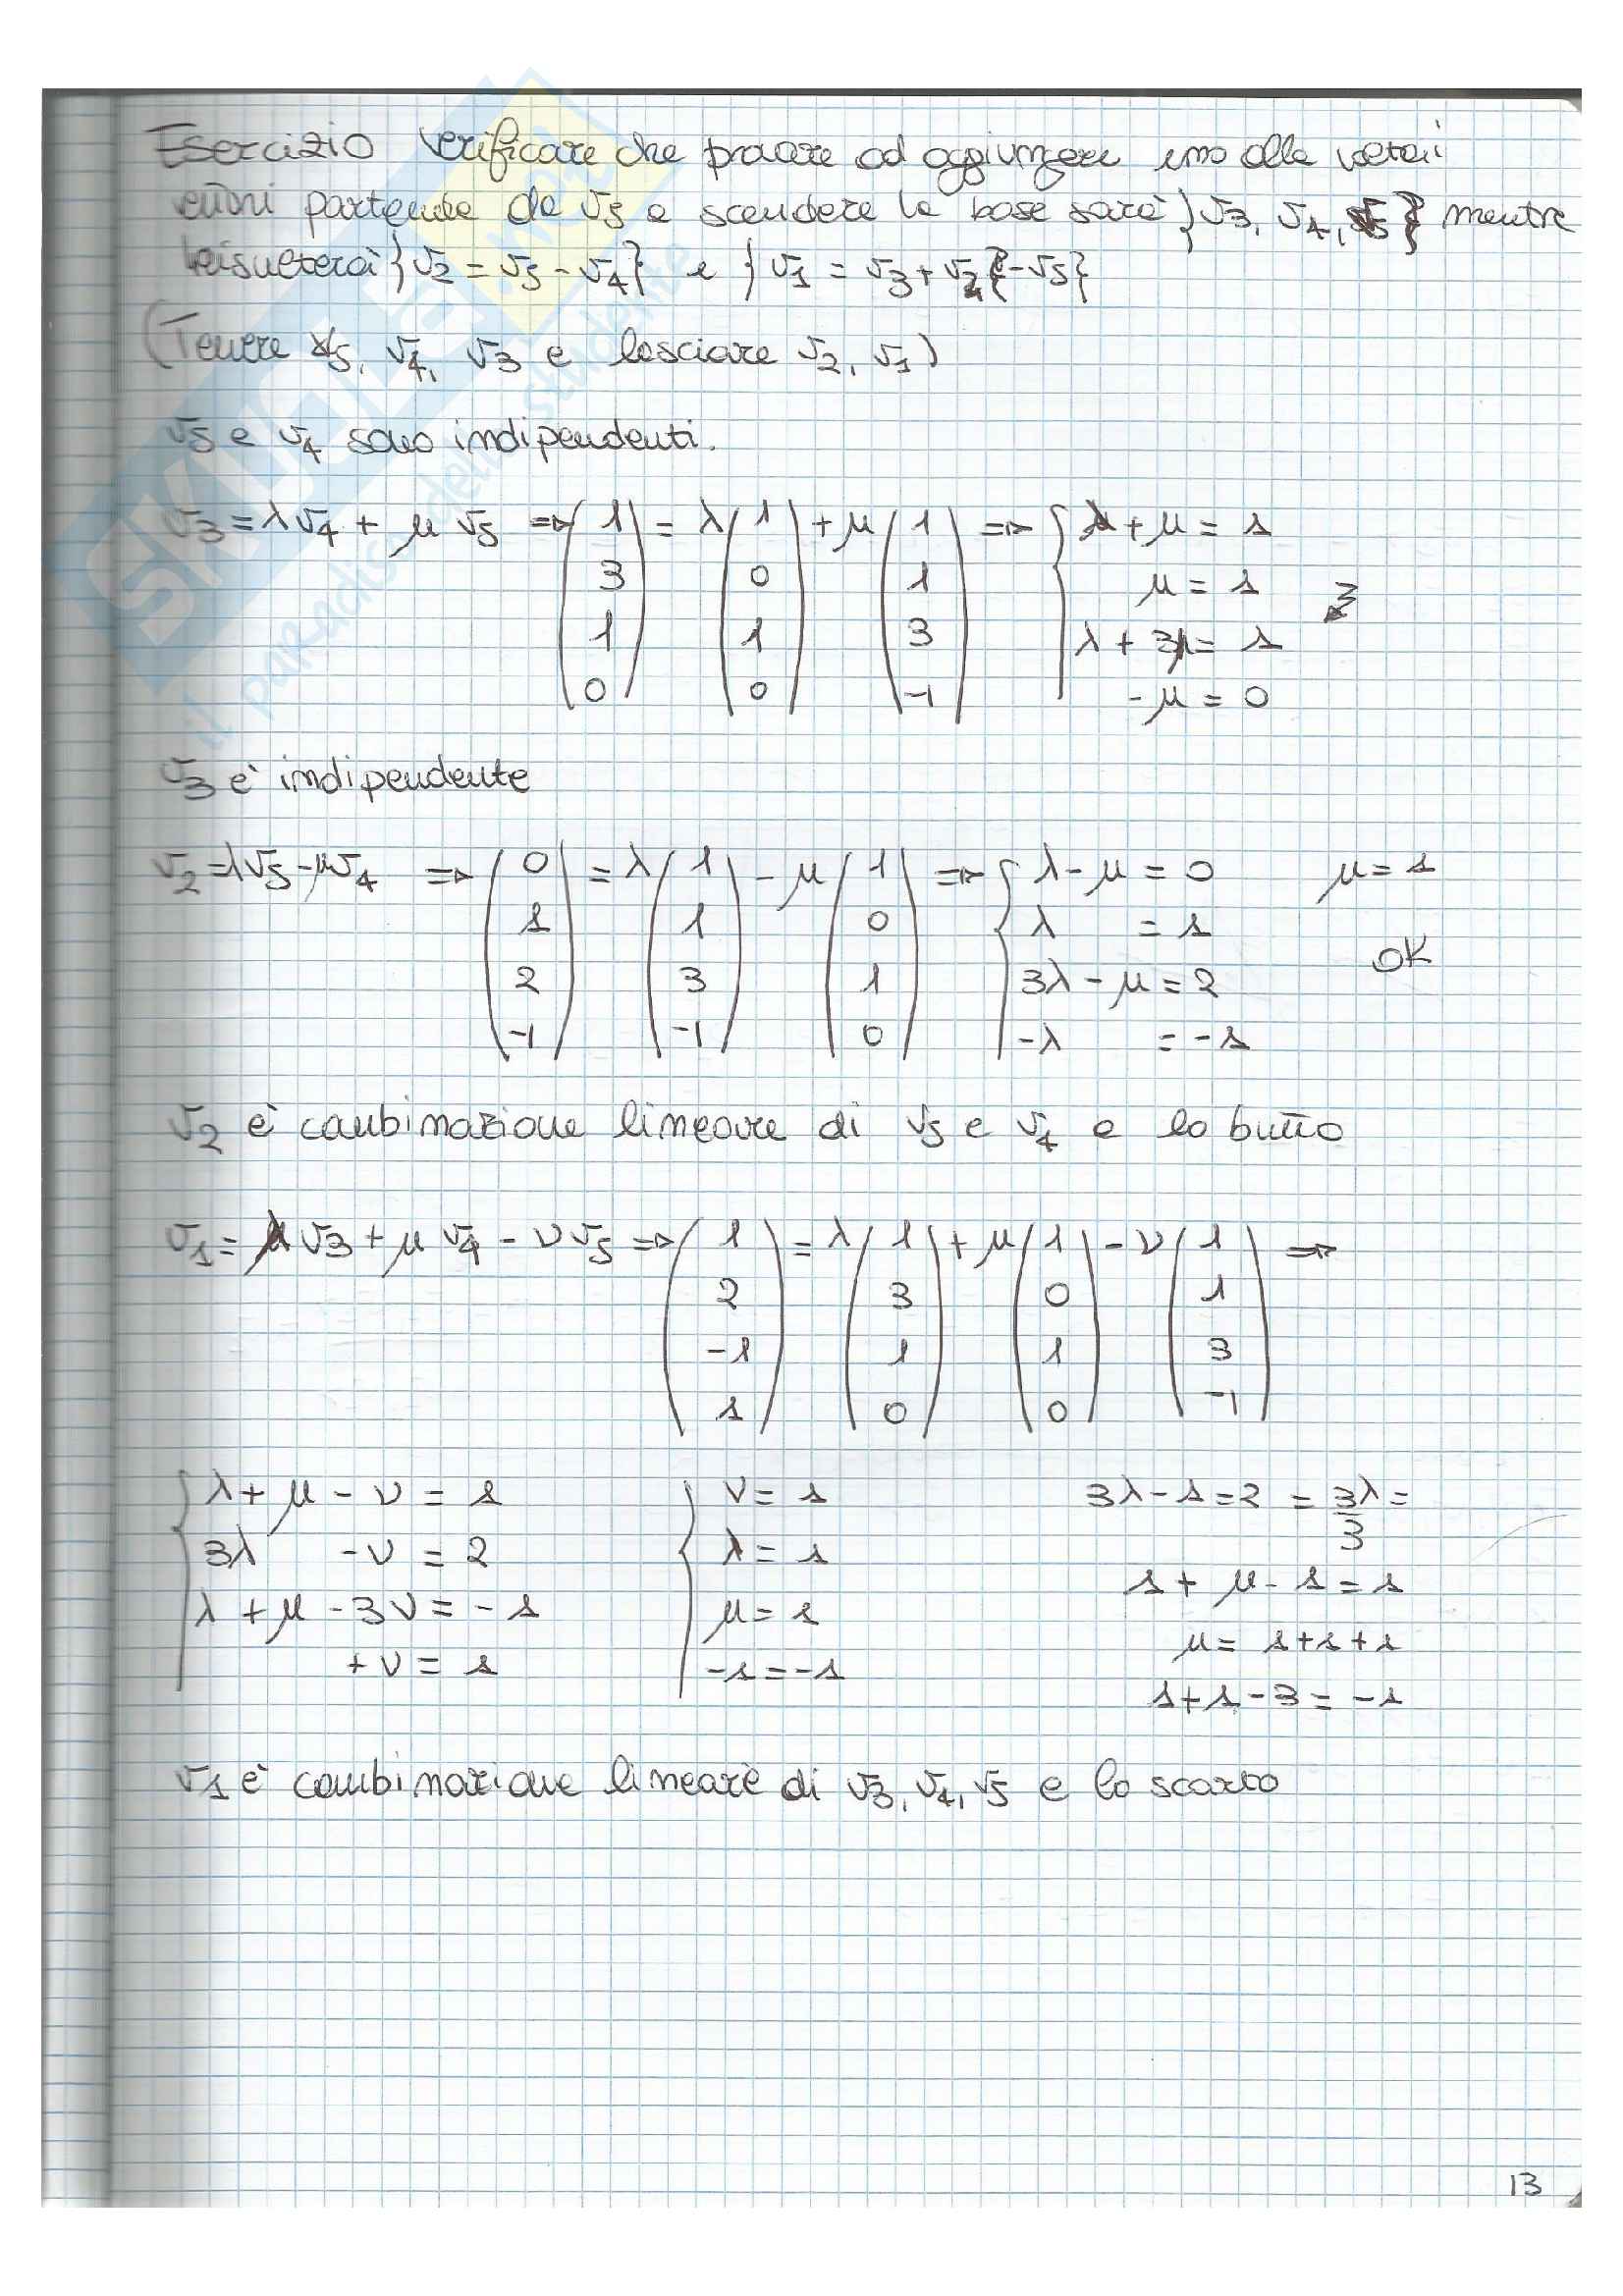 Esercizio Verificare che provare ad aggiungere uno alla
partendo da v5 a scendere la base sarà {v3, v4, v5} mentre
risulterà {v2 = v5 - v4} e {v1 = v3 + v2 {-v5}
(Tenere v5, v4, v3 e lasciare v2, v1)
v5 e v4 sono indipendenti.
v3 = λv4 + μv5 => (1 3 1 0) = λ(1 0 1 0) + μ(1 1 3 -1) => { λ+μ = 1
μ = 1
λ + 3μ = 1
-μ = 0
v3 è indipendente
v2 = λv5 - μv4 => (0 1 2 -1) = λ(1 1 3 -1) - μ(1 0 1 0) => { λ-μ = 0 μ = 1
λ = 1
3λ - μ = 2 OK
-λ = -1
v2 è combinazione lineare di v5 e v4 e lo butto
v1 = λv3 + μv4 - νv5 => (1 2 -1 1) = λ(1 3 1 0) + μ(1 0 1 0) - ν(1 1 3 -1) =>
{ λ + μ - ν = 1 { ν = 1 3λ - 1 = 2 = 3λ/3 =
3λ - ν = 2 λ = 1
λ + μ - 3ν = -1 μ = 1 1 + μ - 1 = 1
+ν = 1 -1 = -1 μ = 1+1+1
1+1-3 = -1
v1 è combinazione lineare di v3, v4, v5 e lo scarto
13
SKUOLA.net
il paradiso dello studente